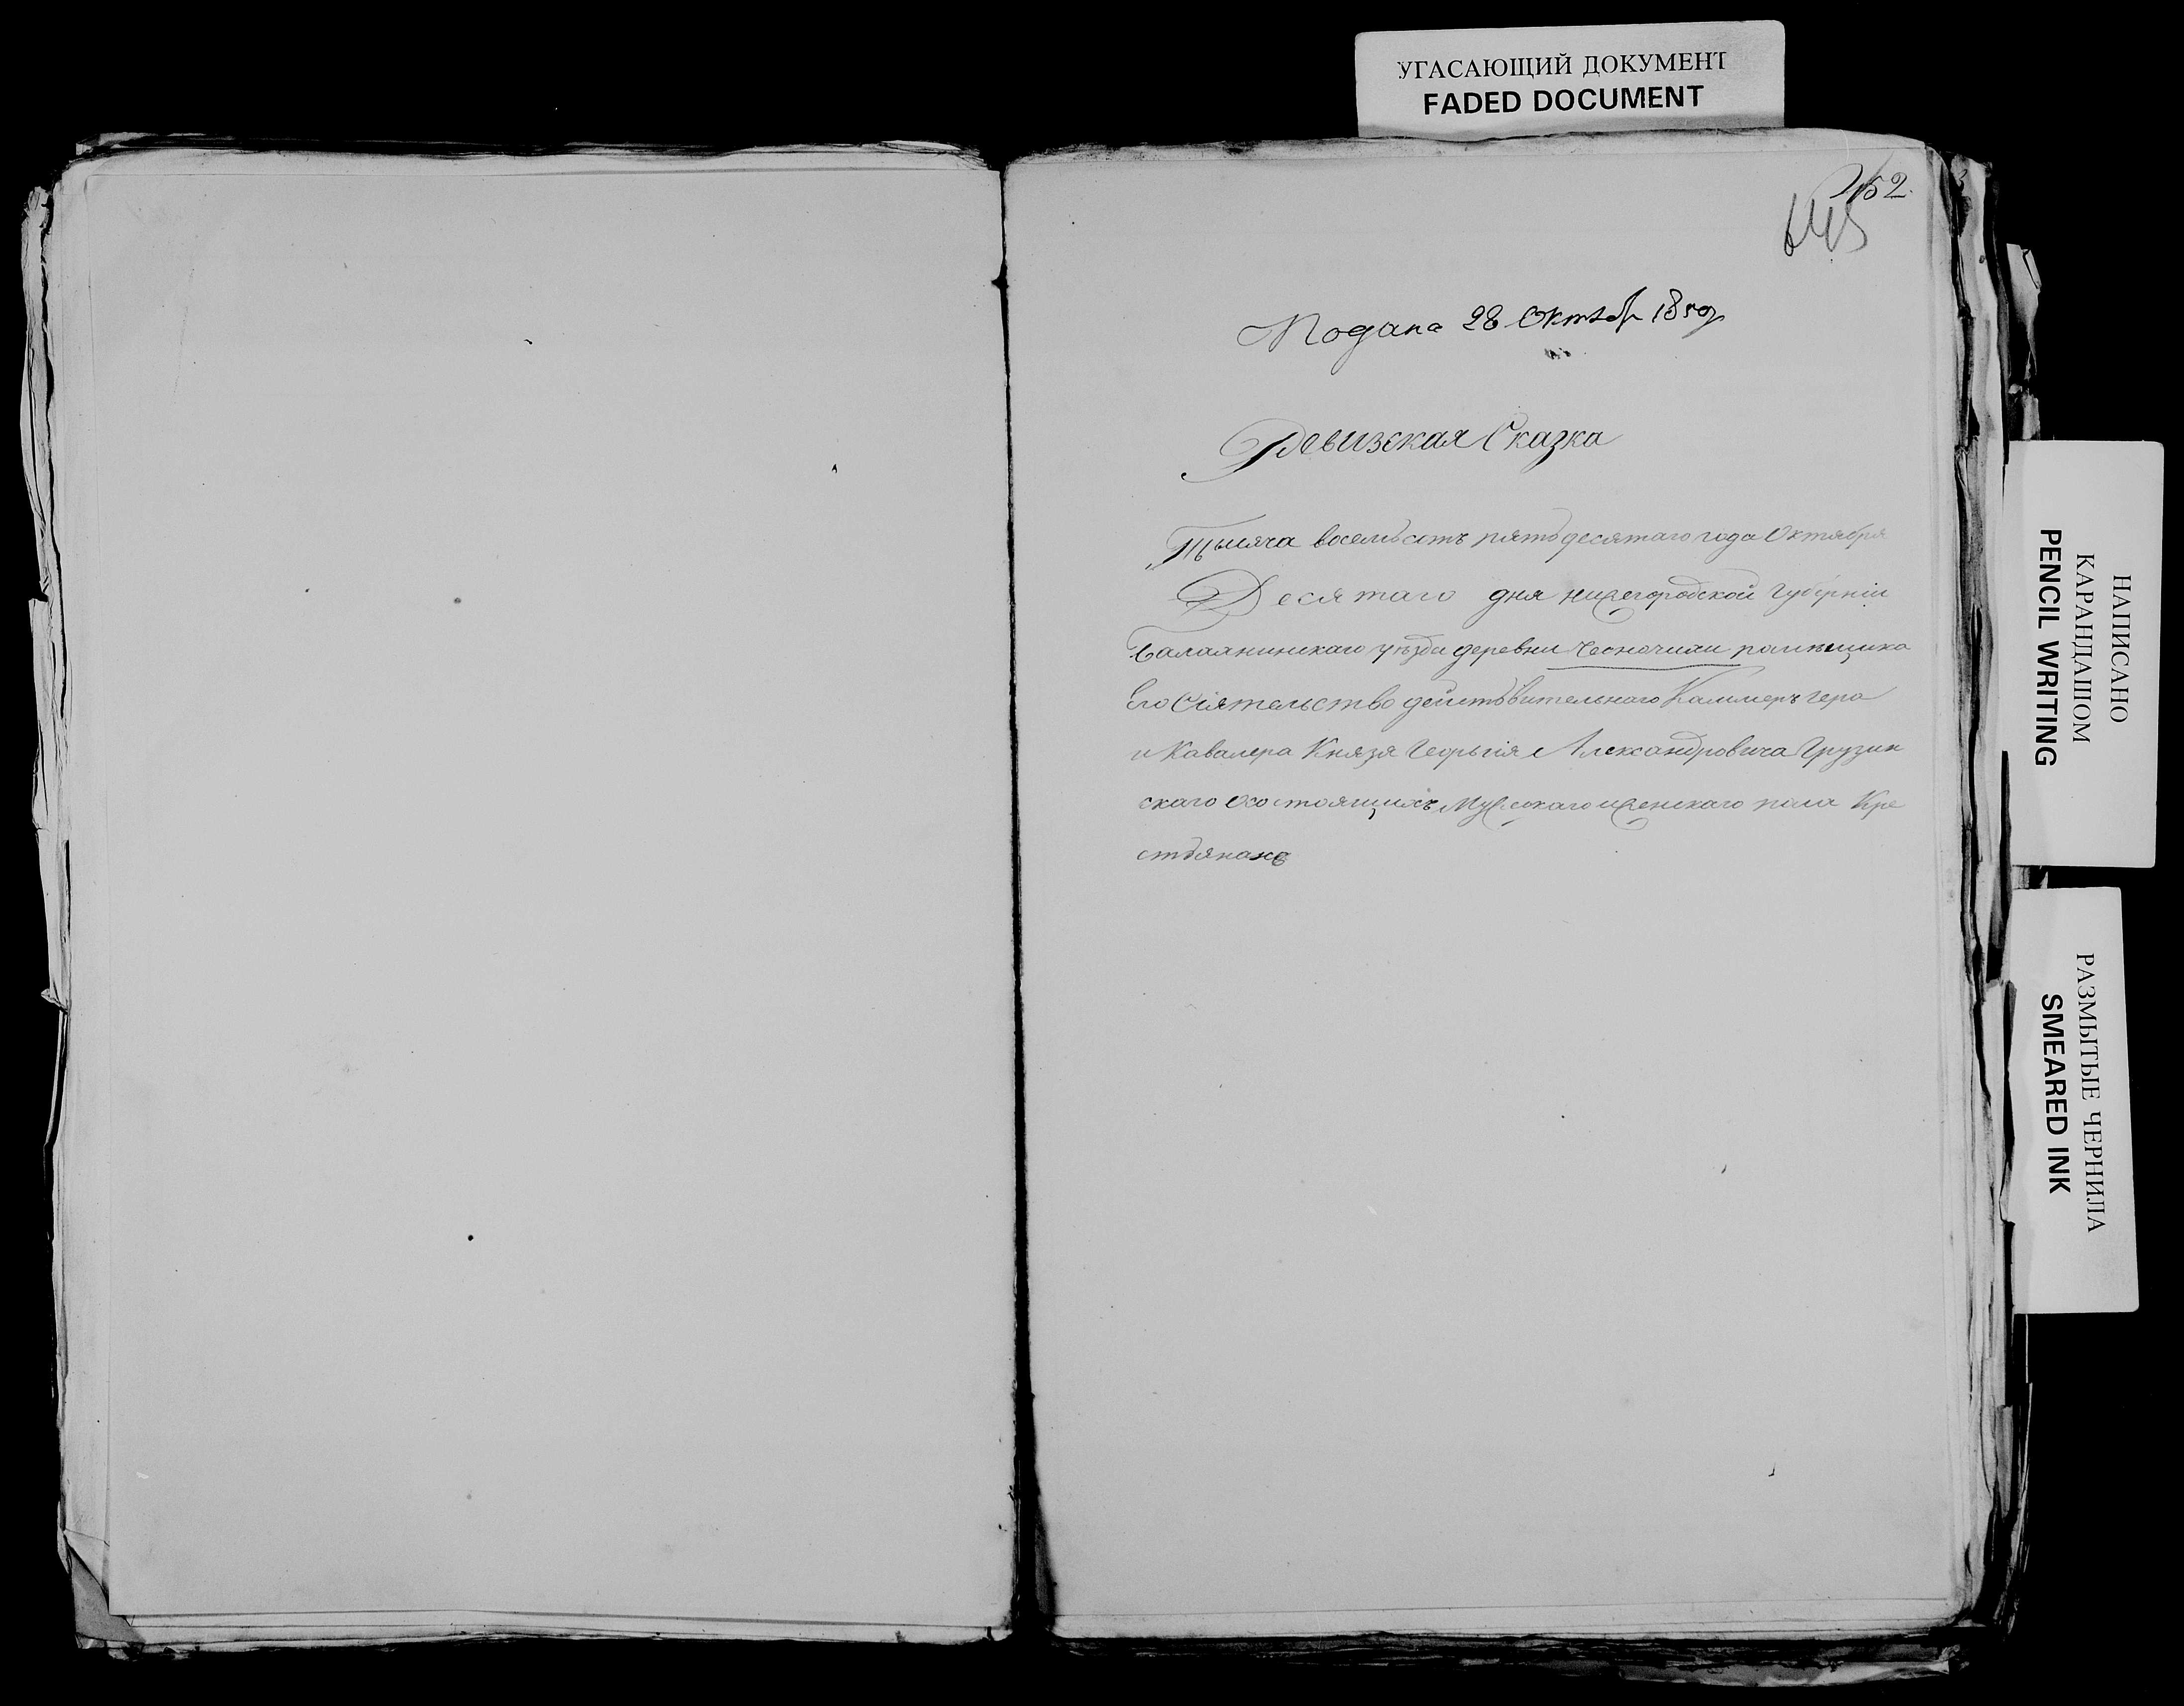 УГАСАЮЩИЙ ДОКУМЕНТ
FADED DOCUMENT
645
Подана 28 Октяб 1850г
Ревизская Сказка
Тысяча восемьсотъ пятьдесятаго года Октября
Десятаго дня нижегородской губерніи
Балахнинскаго уѣзда деревни помѣщика
Его Сіятельство действвительнаго Каммеръгера
и Кавалера Князя Георьгія Александровича Грузин
скаго осостоящихъ Мужескаго иженскаго пола Кре
стьянахъ
НАПИСАНО
КАРАНДАШОМ
PENCIL WRITING
РАЗМЫТЫЕ ЧЕРНИЛА
SMEARED INK